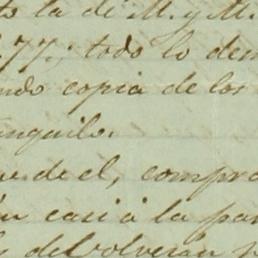 to la de M. y M.
77; todo lo dem
ndo copia de los
anquilo.
de el, compra
n casi à la par
devolveran p